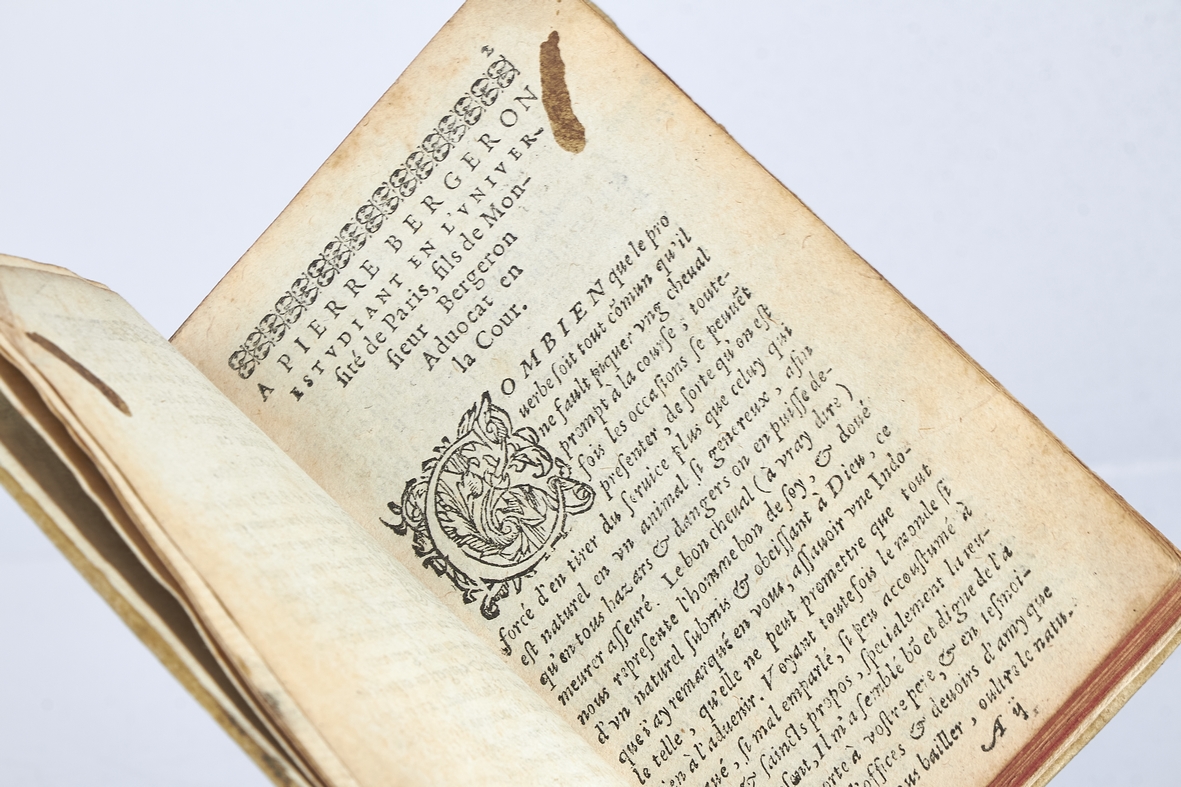 2
A PIERRE BERGERON
ISTVDIANT EN L'VNIVER-
ſité de Paris, fils de Mon-
ſieur Bergeron
Aduocat en
la Cour.
COMBIEN que le pro
uerbe ſoit tout cõmun qu'il
ne fault piquer vng cheual
prompt à la courſe ; toute-
fois les occaſions ſe peuuẽt
preſenter, de ſorte qu'on eſt
forcé d'en tirer du ſeruice plus que celuy qui
eſt naturel en vn animal ſi genereux, afin
qu'en tous hazars & dangers on en puiſſe de-
meurer aſſeuré. Le bon cheual (à vray dire)
nous repreſente l'homme bon de ſoy, & doué
d'vn naturel ſubmis & obeiſſant à Dieu, ce
que i'ay remarqué en vous, aſſauoir vne Indo-
le telle, qu'elle ne peut promettre que tout
en à l'aduenir. Voyant toutefois le monde ſi
né, ſi mal emparlé, ſi peu accouſtumé à
& ſaincts propos, ſpecialement la ieu-
Il m'a ſemblé bõ et digne de l'a
à voſtre pere, & en teſmoi-
d'offices & deuoirs d'amy que
bailler, oultre le natu-
A ij.